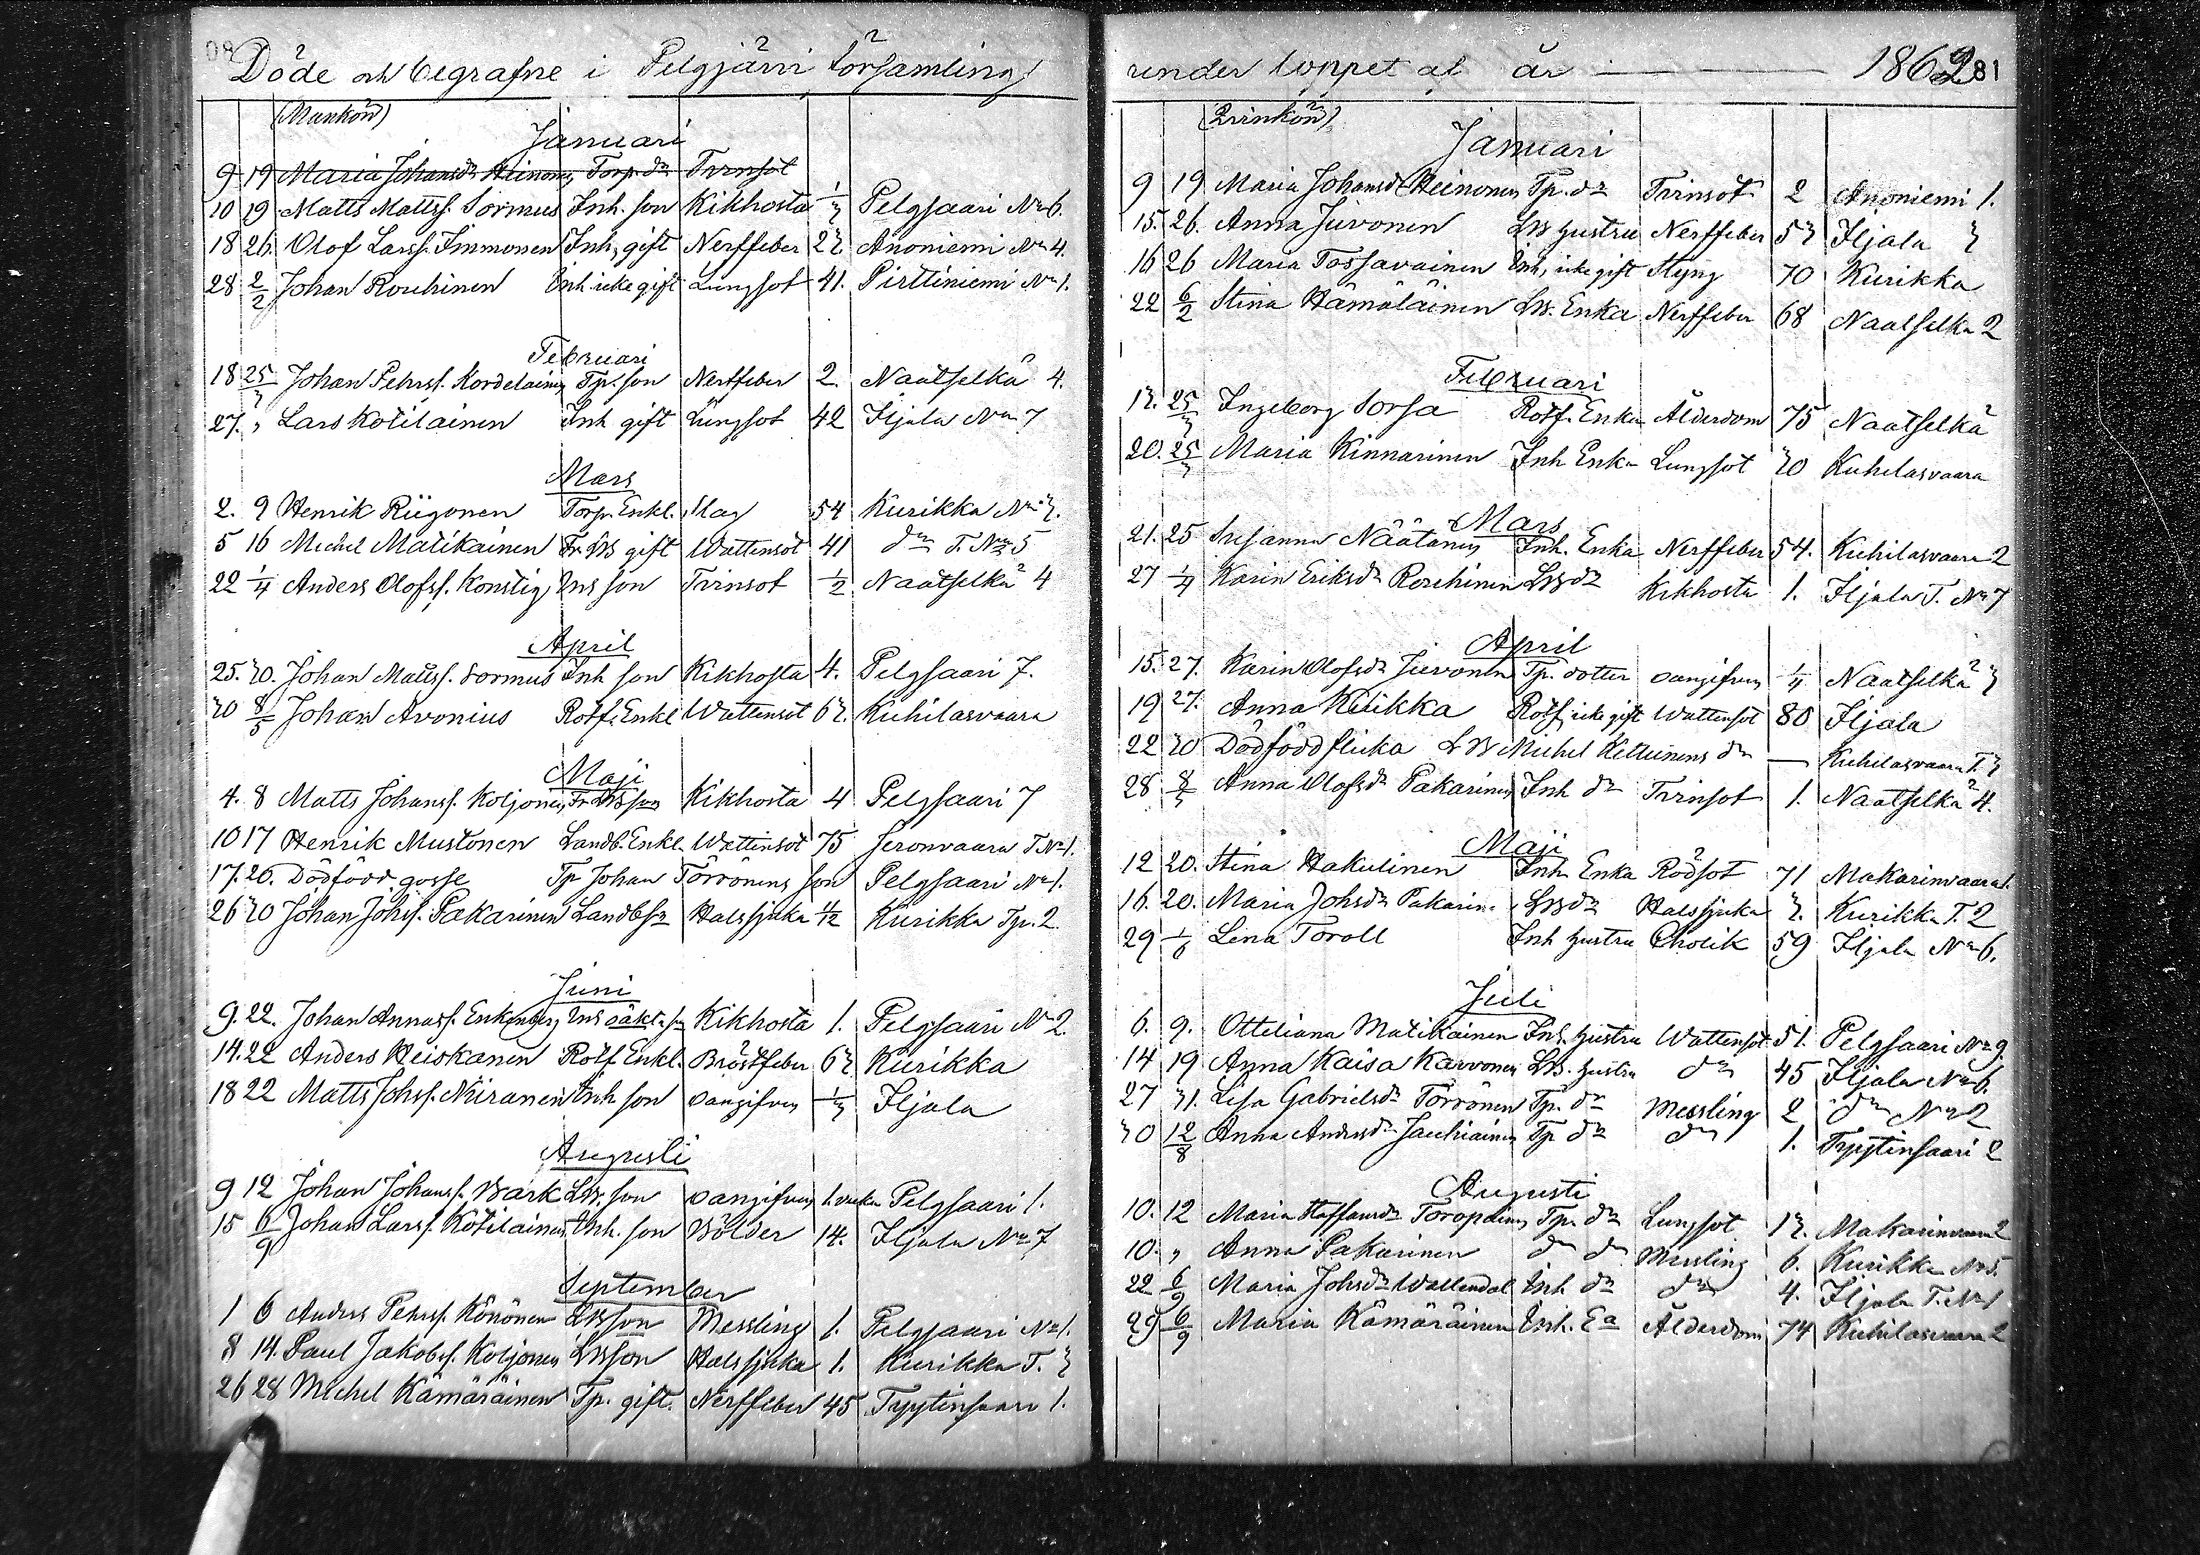 Döde och begrafne i Pelgjärvi församling
(Mankön)
Januari
9 19 Maria Johansdr Heinonen Torp. dr Tvinsot
10 29 Matts Mattss. Sormus Inh. son Kikhosta 1/3 Pelgsaari No 6.
18 26. Olof Larss. Immonen Inh, gift Nerffeber 23. Anoniemi No 4.
28 2/2 Johan Rouhinen Inh icke gift Lungsot 41. Pirttiniemi No 1.
Februari
18 25/3 Johan Pehrss. Kordelainen Tp. son Nerffeber 2. Naatselkä 4.
27. " Lars Kotilainen Inh gift Lungsot 42 Iljala No 7
Mars
2. 9 Henrik Riigonen Torp. Enkl. Slag 54 Kurikka No 3.
5 16 Michel Matikainen Fr. LB gift Wattensot 41 do T. No 5
22 1/4 Anders Olofss. Konstig Inh son Tvinsot 1/2 Naatselkä 4
April
25. 30. Johan Mattss. Sormus Inh son Kikhosta 4. Pelgsaari 7.
30 8/5 Johan Avonius Rotf. Enkl Wattensot 63. Kuhilasvaara
Maji
4. 8 Matts Johanss. Koljonen Fr LBs son Kikhosta 4 Pelgsaari 7
10 17 Henrik Mustonen Landb. Enkl. Wattensot 75 Jeronvaara T. No 1.
17. 26. Dödfödd gosse Tp Johan Törrönens son Pelgsaari No 1.
26 30 Johan Johss. Pakarinen Landb Sn Halssjuka 1/2 Kurikka Tp. 2.
Juni
9. 22. Johan Annass. Enkenberg Inh oäkta sn Kikhosta 1. Pelgsaari No 2.
14. 22 Anders Heiskanen Rotf. Enkl. Bröstfeber 63. Kurikka
18 22 Matts Johss. Niiranen Inh son oangifven 1/3 Iljala
Augusti
9 12 Johan Johanss. Bark LB. son oangifven 1. vecka Pelgsaari 1.
15 6/9 Johan Larss. Kotilainen Inh. son Bölder 14. Iljala No 7
September
1 6 Anders Pehrss. Könönen LBson Messling 1. Pelgsaari No 1.
8 14. Paul Jakobss. Koljonen LBson Halssjuka 1. Kurikka T. 3
26 28 Michel Kämäräinen Tp. gift. Nerffeber 45 Tyytinsaari 1.
under loppet af år 1862 81
(Qvinkön)
Januari
9 19 Maria Johansdr Heinonen Tp. dr Tvinsot 2 Anoniemi 1.
15. 26. Anna Juvonen LB hustru Nerffeber 53 Iljala 3
16 26 Maria Tossavainen Inh, icke gift Styng 70 Kurikka
22 6/2 Stina Hämäläinen LB. Enka Nerffeber 68 Naatselkä 2
Februari
13. 25/3 Ingeborg Sorsa Rotf. Enka Ålderdom 75 Naatselkä
20. 25/3 Maria Kinnarinen Inh Enka Lungsot 30 Kuhilasvaara
Mars
21. 25 Susanna Näätänen Inh. Enka Nerffeber 54. Kuhilasvaara 2
27 1/4 Karin Eriksdr Rouhinen LB dr Kikhosta 1. Iljala T. No 7
April
15. 27. Karin Olofsdr Juvonen Tp. dotter oangifven 1/4 Naatselkä 3
19 27. Anna Kukka Rotf, icke gift Wattensot 80 Iljala
22 30 Dödfödd flicka LB Michel Kettunens dr — Kuhilasvaara T. 3
28 8/5 Anna Olofsdr Pakarinen Inh dr Tvinsot 1. Naatselkä 4.
Maji
12 20. Stina Hakulinen Inh Enka Rödsot 71 Makarinvaara 1.
16. 20. Maria Johsdr Pakarin. LB dr Halssjuka 3. Kurikka T. 2
29 1/6 Lena Toroll Inh hustru Cholik 59 Iljala No 6.
Juli
6. 9. Otteliana Matikainen Inh. hustru Wattensot 51. Pelgsaari No 9.
14 19 Anna Kaisa Karvonen LB. hustru do 45 Iljala No 6.
27 31. Lisa Gabrielsdr Törrönen Tp. dr Messling 2 do No 2
30 12/8 Anna Andersdr Jauhiainen Tp dr do 1. Tyytinsaari 2
Augusti
10. 12 Maria Staffansdr Toropainen Tp. dr Lungsot 13. Makarinvaara 2
10. " Anna Pakarinen do dr Messling 6. Kurikka No 5.
22 6/9 Maria Johsdr Wallendal Inh dr do 4. Iljala T. No 1
29 6/9 Maria Kämäräinen Inh. Ea Ålderdom 74 Kuhilasvaara 2